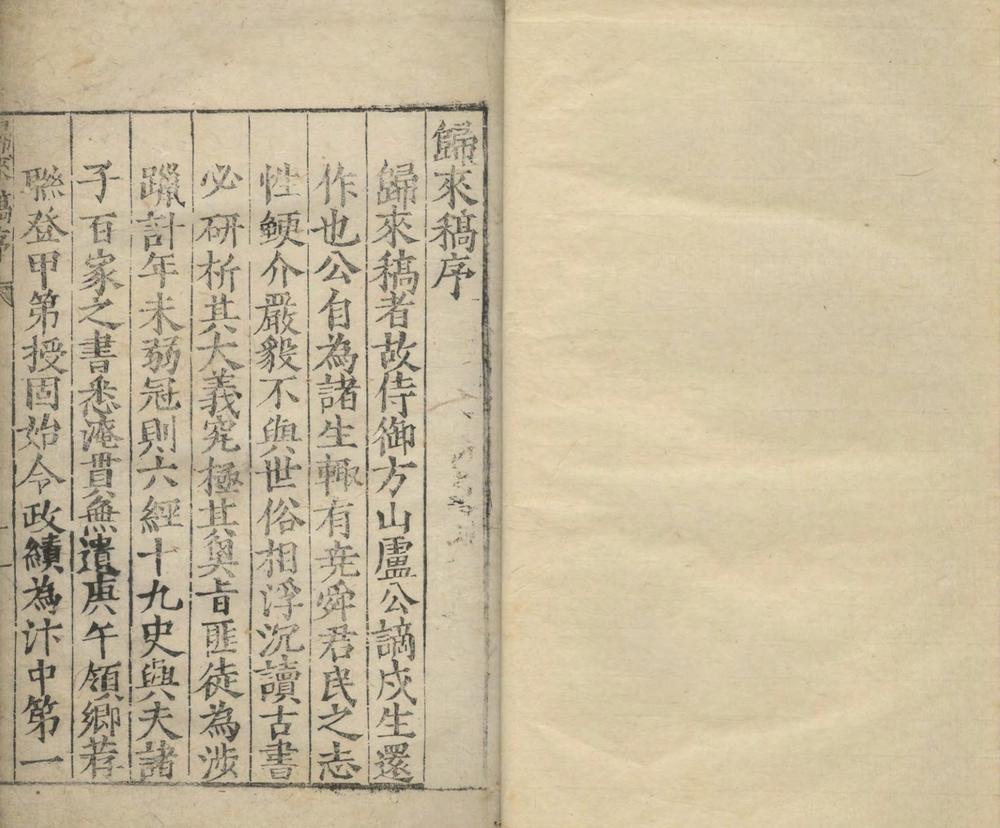 歸來稿序
歸來稿者故侍御方山盧公謫戍生還
作也公自為諸生輙有堯舜君民之志
性鯁介嚴毅不與世俗相浮沉讀古書
必研析其大義究極其奧旨匪徒為涉
躐計年未弱冠則六經十九史與夫諸
子百家之書悉淹貫無遺庚午領鄉荐
聮登甲第授固始令政績為汴中第一
歸來稿序